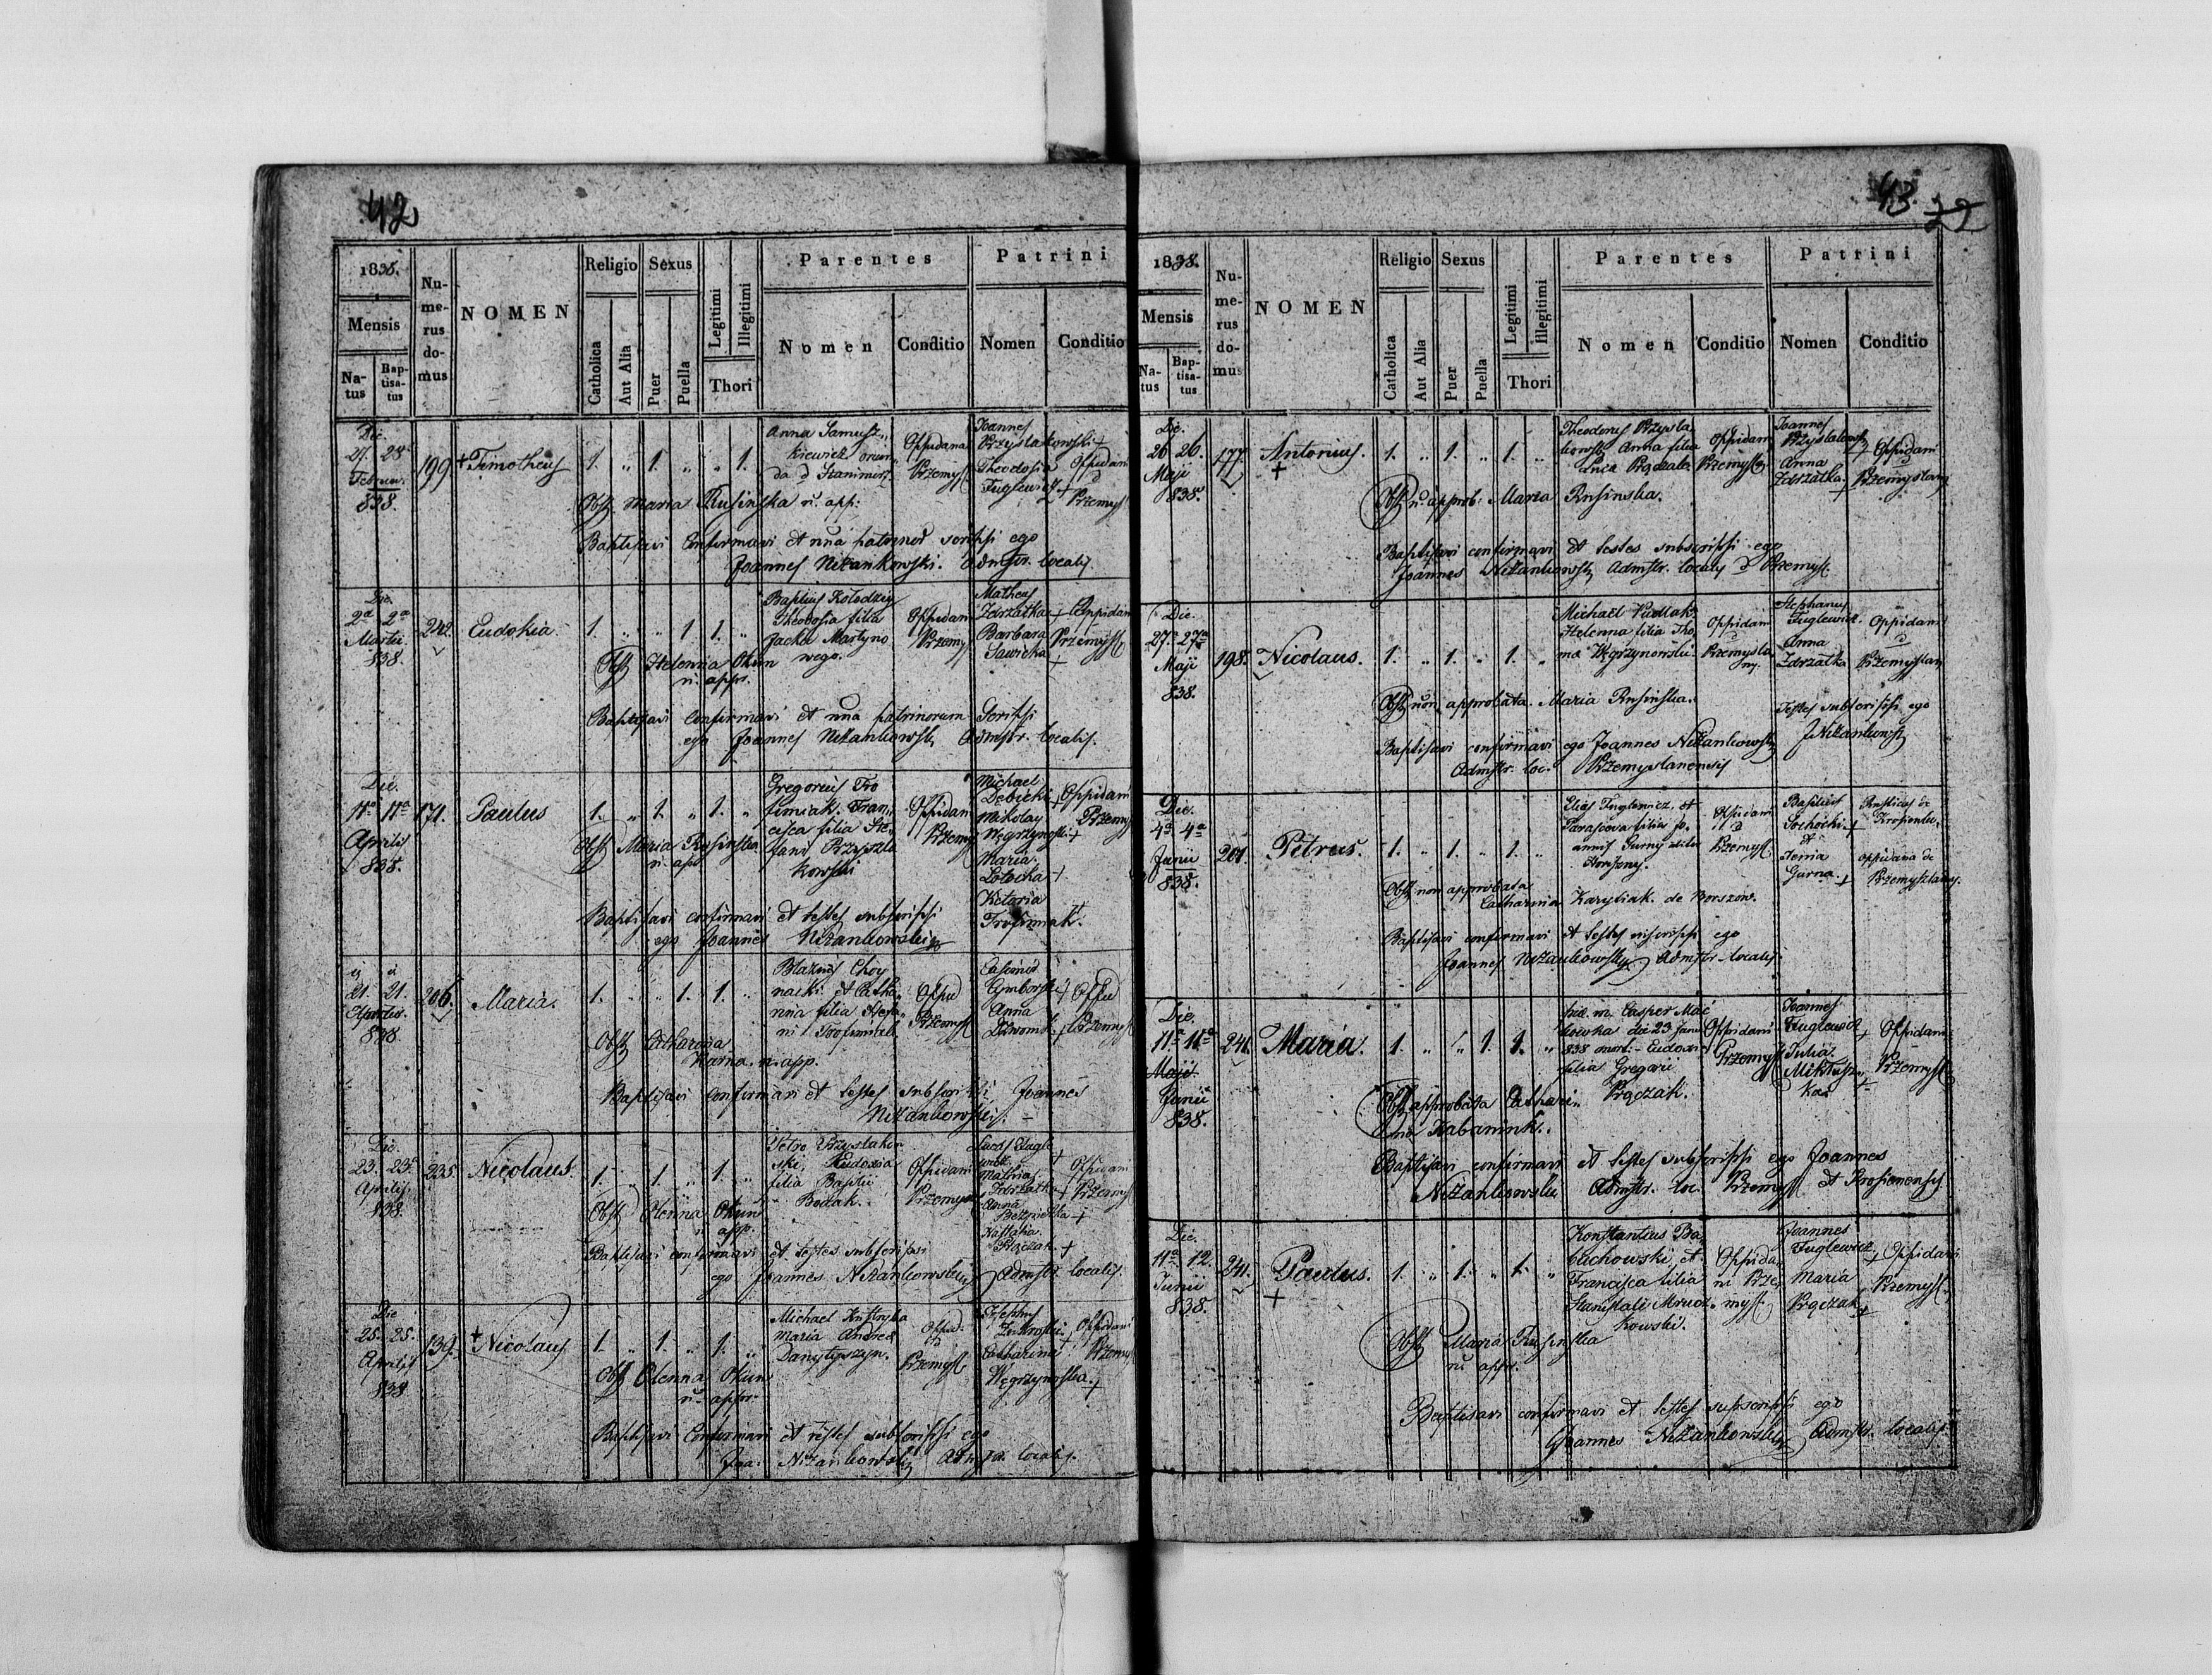 42
1838.
Mensis
Natus
Baptisatus
Numerus domus
NOMEN
Religio
Catholica
Aut Alia
Sexus
Puer
Puella
Legitimi
Illegitimi
Thori
Parentes
Nomen
Conditio
Patrini
Nomen
Conditio
Die.
27. 28
Februar.
838.
199
+ Timotheus
1. „ 1. „ „ 1.
Anna Samusz„
kiewicz
Oppidana
Przemysl
Joannes
Przyslakowski +
Theodosia
Fuglewicz +
Oppidani
Przemysl
Obst Maria Rusinska n. app:
Baptisavi Confirmavi et una patrinor scripsi ego
Joannes Nizankowski. Admstr. localis.
Die.
2a 2a
Martii
838.
242.
Eudokia.
1. „ „ 1 1. „
Basilius Kolodziey
Theodosia filia
Jacku Martyno
wego.
Oppidani
Przemy
Matheus
Zdrzalka +
Barbara
Sawicka +
Oppidani
Przemysl
Obst Helenna Okun
n. appr.
Baptisavi Confirmavi et una patrinorum Scripsi
ego Joannes Nizankowski Admstr. localis.
Die.
11a 11a
Aprilis
838.
171.
Paulus
1. „ 1. „ 1. „
Gregorius Tro
fimiak. Fran„
cisca filia Ste„
fani Przysla
kowski
Oppidani
Przemy
Michael
Debicki +
Mikolay
Węgrzynoski +
Maria
Lotocka +
Ketoria
Trofimiak.
Oppidani
Przemy
Obst Maria Rusinska
n. app
Baptisavi confirmavi et testes subscripsi
ego Joannes Nizankowski
21. 21.
Aprilis.
838
206.
Maria.
1. „ „ 1. 1. „
Blazius Choy
nacki et Catha„
rina filia Stefa„
ni Trofimiak
Oppid
Przemysl
Casimir
Gmborski +
Anna
Oppid
Przemysl
Obst Catharina
Warna. n. app.
Baptisavi Confirmavi et testes subscripsi Joannes
Nizankowski. –
Die.
23. 23.
Aprilis
838.
235.
Nicolaus.
1. „ 1. „ 1. „
Petro Przyslakow
ski, Eudoxia
filia Basilii
Bodak.
Oppidani
Przemysl
Lucas Fugle
wicz +
Mathias
Zdrzalka +
Anna
+
Nastazia
Prączak +
Oppidani
Przemysl
Obst Olenna Okun
n app.
Baptisavi confirmavi et testes subscripsi
ego Joannes Nizankowski Admstr localis.
Die
25. 25.
Aprilis
838
139.
+ Nicolaus
1. „ 1. „ 1. „
Michael
Maria Andrea
Danylyszyn.
Oppid.
Przemysl
Stephanus
+
Catharina
Węgrzynoska +
Oppidani
Przemysl
Obst Olenna Okun
n. appr.
Baptisavi Confirmavi et testes subscripsi ego
Joa. Nizankowski Admstr. localis.
43. 22
1838.
Mensis
Natus
Baptisatus
Numerus domus
NOMEN
Religio
Catholica
Aut Alia
Sexus
Puer
Puella
Legitimi
Illegitimi
Thori
Parentes
Nomen
Conditio
Patrini
Nomen
Conditio
Die.
26 26.
Maji
838.
177
Antonius.
+
1. „ 1. „ 1. „
Theodorus Przysla
kowski Anna filia
Luca Prączak
Oppidani
Przemysl
Joannes
Przyslakowski +
Anna
Zdrzalka +
Oppidani
Przemyslany
Obst n. approb. Maria Rusinska.
Baptisavi confirmavi et testes subscripsi ego
Joannes Nizankowski Admstr. localis Przemysl.
Die.
27. 27a
Maji
838.
198.
Nicolaus.
1. „ 1. „ 1. „
Michael Pudlak
Helenna filia Tho„
ma Węgrzynowski
Oppidani
Przemysla
ny.
Stephanus
Fuglewicz.
Anna
Zdrzalka
Oppidani
Przemyslany
Obst non approbata. Maria Rusinska.
Testes subscripsi ego
JNizankowski
Baptisavi confirmavi ego Joannes Nizankowski
Admstr. loc. Przemyslanensis
Die.
4a 4a
Junii
838.
201.
Petrus.
1. „ 1. „ 1. „
Elias Fuglewicz et
Parascova filia Jo„
annis Gurny
Oppidani
Przemysl
Basilius
Sochocki +
et
Gurna. +
Rusticus de
Krosienko.
oppidana de
Przemyslany.
Obst non approbata
Catharina Karyliak de Borszow.
Baptisavi confirmavi et testes inscripsi ego
Joannes Nizankowski Admstr. localis
Die.
11a 11a
Maji
Junii
838.
241.
Maria.
1. „ „ 1. 1. „
Casper Mac
lowka die 23 Janu
838 mort. – Eudoxia
filia Gregorii
Prączak.
Oppidani
Przemysl
Joannes
Fuglewicz +
Julia
Miktusz„
ka +
Oppidani
Przemysl
Obst approbata Cathari„
na Kabaniuk.
Baptisavi confirmavi et testes subscripsi ego Joannes
Nizankowski Admstr. loc. Przemysl et Krosienensis
Die.
11a 12.
Junii
838.
241.
Paulus.
+
1. „ 1. „ 1. „
Konstantius Ba„
lichowski, et
Francisca filia
Stanislai Mrucz„
kowski.
Oppida„
ni Prze„
mysl.
Joannes
Fuglewicz +
Maria
Prączak +
Oppidani
Przemysl.
Obst Maria Rusinska
n. appr.
Baptisavi confirmavi et testes subscripsi ego
Joannes Nizankowski Admstr. localis.